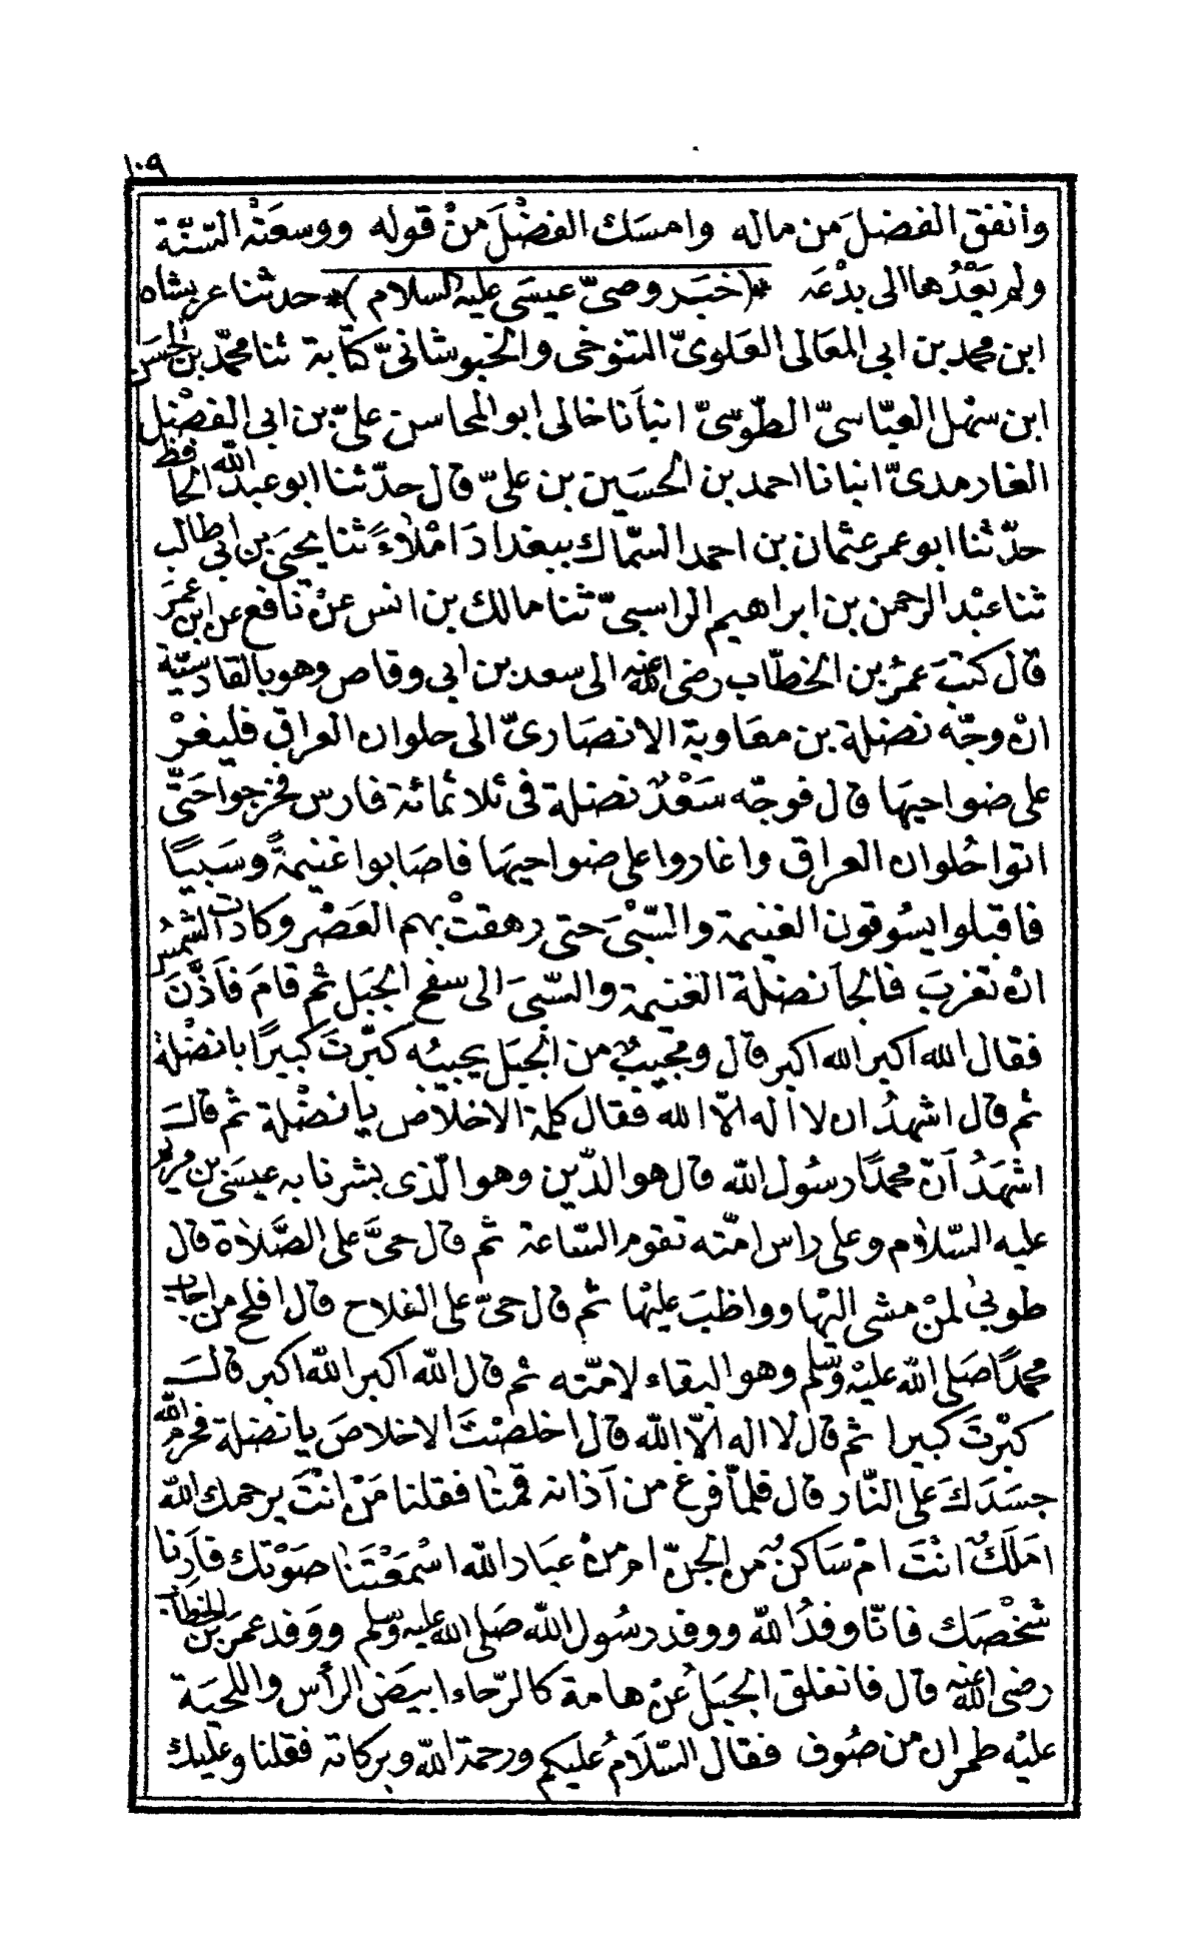 ١٠٩
وأنفق الفضلَ من ماله وامسَك الفضْلَ منْ قوله ووسعَتْه السّنّة
ولم يَعْدُها الى بدْعَة *(خبَر وصىّ عيسَى عليه السلام)* حدثنا عربشاه
ابن محمد بن ابي المعَالى العَلوىّ التنوخى والخبوشانىّ كتّابة ثنا محمّد بن الحسَن
ابن سهْل العبّاسىّ الطّوسىّ انبأنا خالى ابو المحاسن علىّ بن ابى الفضْل
الغارمدىّ انبانا احمد بن الحسَين بن علىّ قال حدّثنا ابو عبد الله الحافظ
حدّثنا ابو عمر عثمان بن احمد السّماك ببغدادَ امْلاءً ثنا يحيَى بن ابى طالب
ثنا عبْد الرحمن بن ابراهيم الراسبىّ ثنا مالك بن انس عنْ نافع عن ابن عمَر
قال كتبَ عمرُ بن الخطّاب رضى الله عنه الى سعد بن ابى وقاص وهو بالقادسيّة
انْ وجّه نضلة بن معَاوية الانصَارىّ الى حلوان العراق فليغرْ
على ضواحيهَا قال فوجّه سَعْدٌ نضلة فى ثلاثمائة فارس فخرجوا حَتّى
اتوا حُلوان العراق واغاروا على ضواحيهَا فاصَابوا غنيمةً وسَبيًا
فاقبلوا يسُوقون الغنيمة والسّبْىَ حتى رهقتْ بهم العَصْر وكادت الشمسُ
انْ تغربَ فالجأ نضلة الغنيمة والسّبىَ الى سفح الجبَل ثم قامَ فَأذّنَ
فقال الله اكبر الله اكبر قال ومجيبٌ من الجبَل يجيبُه كبّرتَ كبيرًا يا نضْلة
ثم قال اشهدُ ان لا اله الّا الله فقال كلمة الاخلاص يا نضْلة ثم قال
اشهَدُ أنّ محمدًا رسُول الله قال هو الدّين وهو الّذى بشرنا به عيسَى بن مريم
عليه السّلام وعلى راس امّته تقوم السّاعة ثم قال حىَّ على الصَّلاة قال
طوبىٰ لمنْ مشى اليْها وواظبَ عليْها ثم قال حىّ على الفلاح قال افلح من اجاب
محمدًا صَلى الله عليْه وسّلم وهو البقاء لامّته ثم قال الله اكبر الله اكبر قال
كبّرْتَ كبيرا ثم قال لا اله الّا الله قال اخلصْتَ الاخلاصَ يا نضلة فحرم الله
جسَدَكَ على النّار قال فلمّا فرغ من آذانه قمْنا فقلنا مَنْ انْتَ يرحمك الله
امَلَكٌ انْتَ امْ سَاكنٌ من الجنّ امر منْ عبَاد الله اسْمَعْتَنا صَوْتك فأرنا
شخْصَك فانّا وفدُ الله ووفد رسُول الله صَلى الله عليه وسلم ووفد عمرَ بن الخطاب
رضى الله عنه قال فانفلق الجبَلُ عنْ هامة كالرّحاء ابيَض الرأس واللحيَة
عليْه طمران من صُوف فقال السّلامُ عليكم ورحمة الله وبركاته فقلنا وعليك